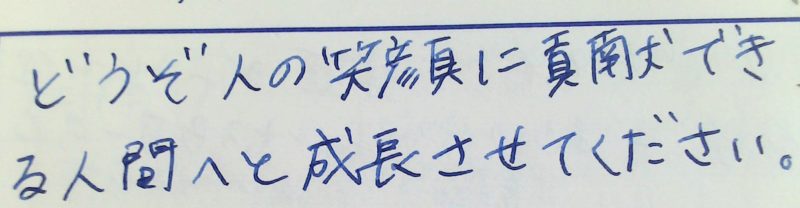 どうぞ人の笑顔に貢献でき
る人間へと成長させてください。